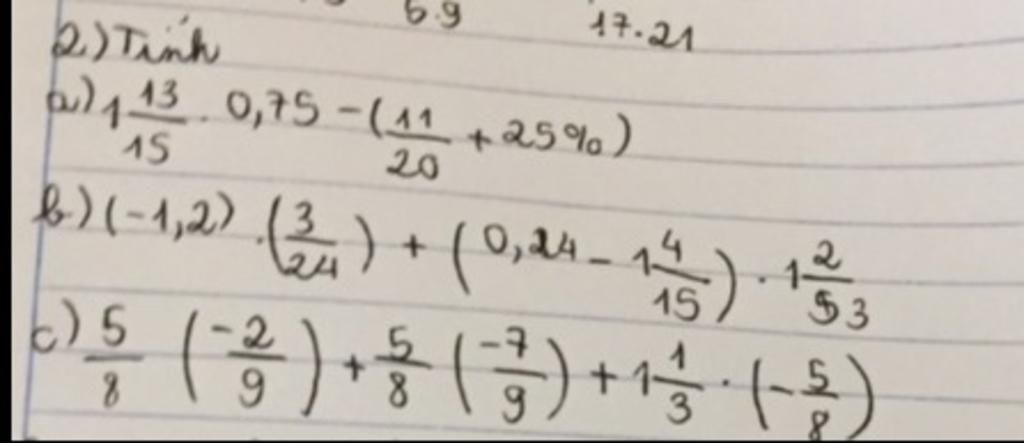 6.9 17.21
2) Tính
a) 1 13/15 . 0,75 - (11/20 + 25%)
b) (-1,2) . (3/24) + (0,24 - 1 4/15) . 1 2/53
c) 5/8 (-2/9) + 5/8 (-7/9) + 1 1/3 . (-5/8)